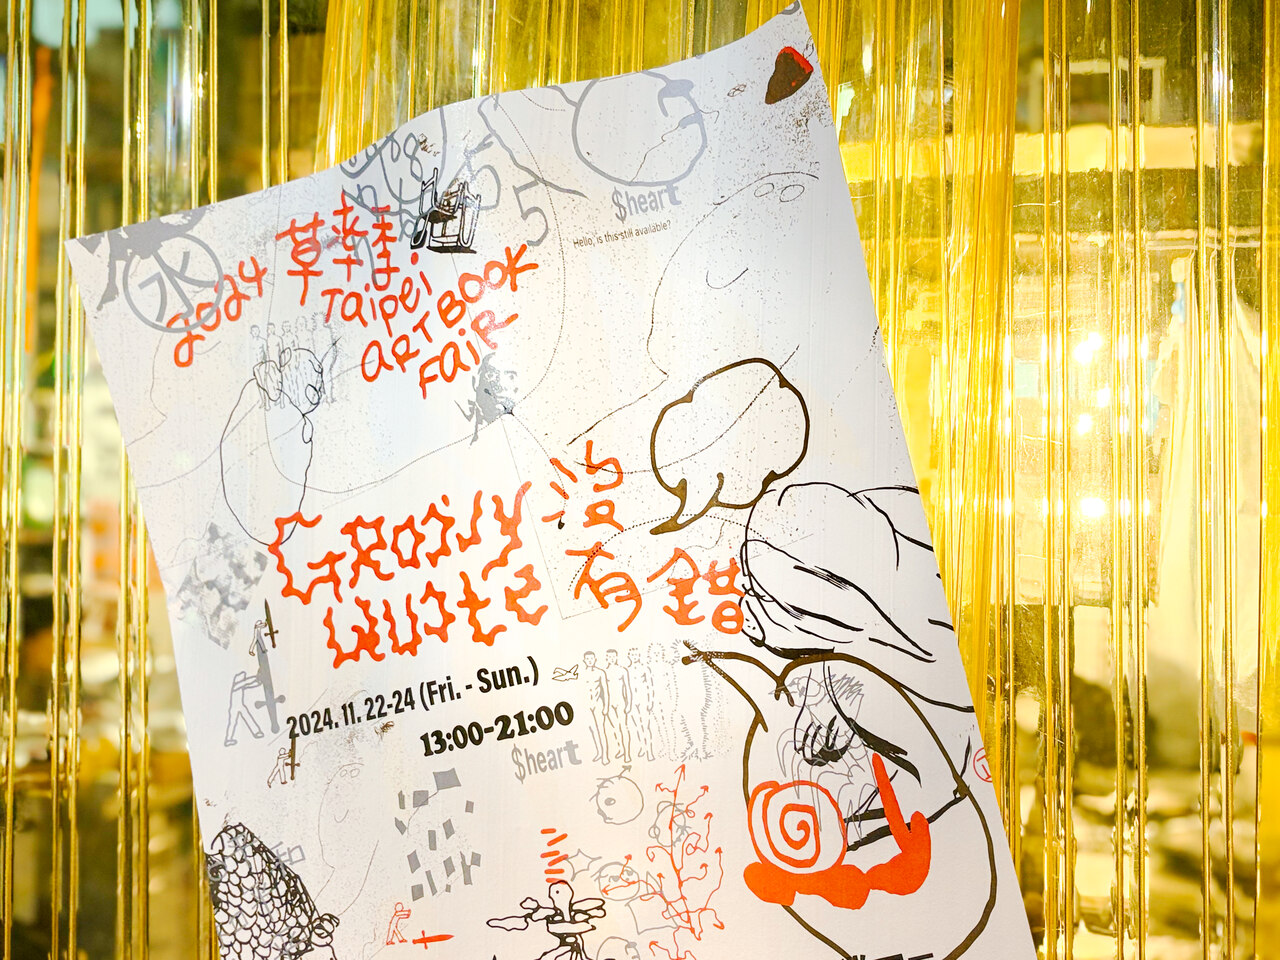 $heart
Hello, is this still available?
水
2024 草率季
Taipei
ART BOOK
FAIR
5
GRAVY
QUOTE
有錯
2024. 11. 22-24 (Fri. - Sun.)
13:00-21:00
$heart